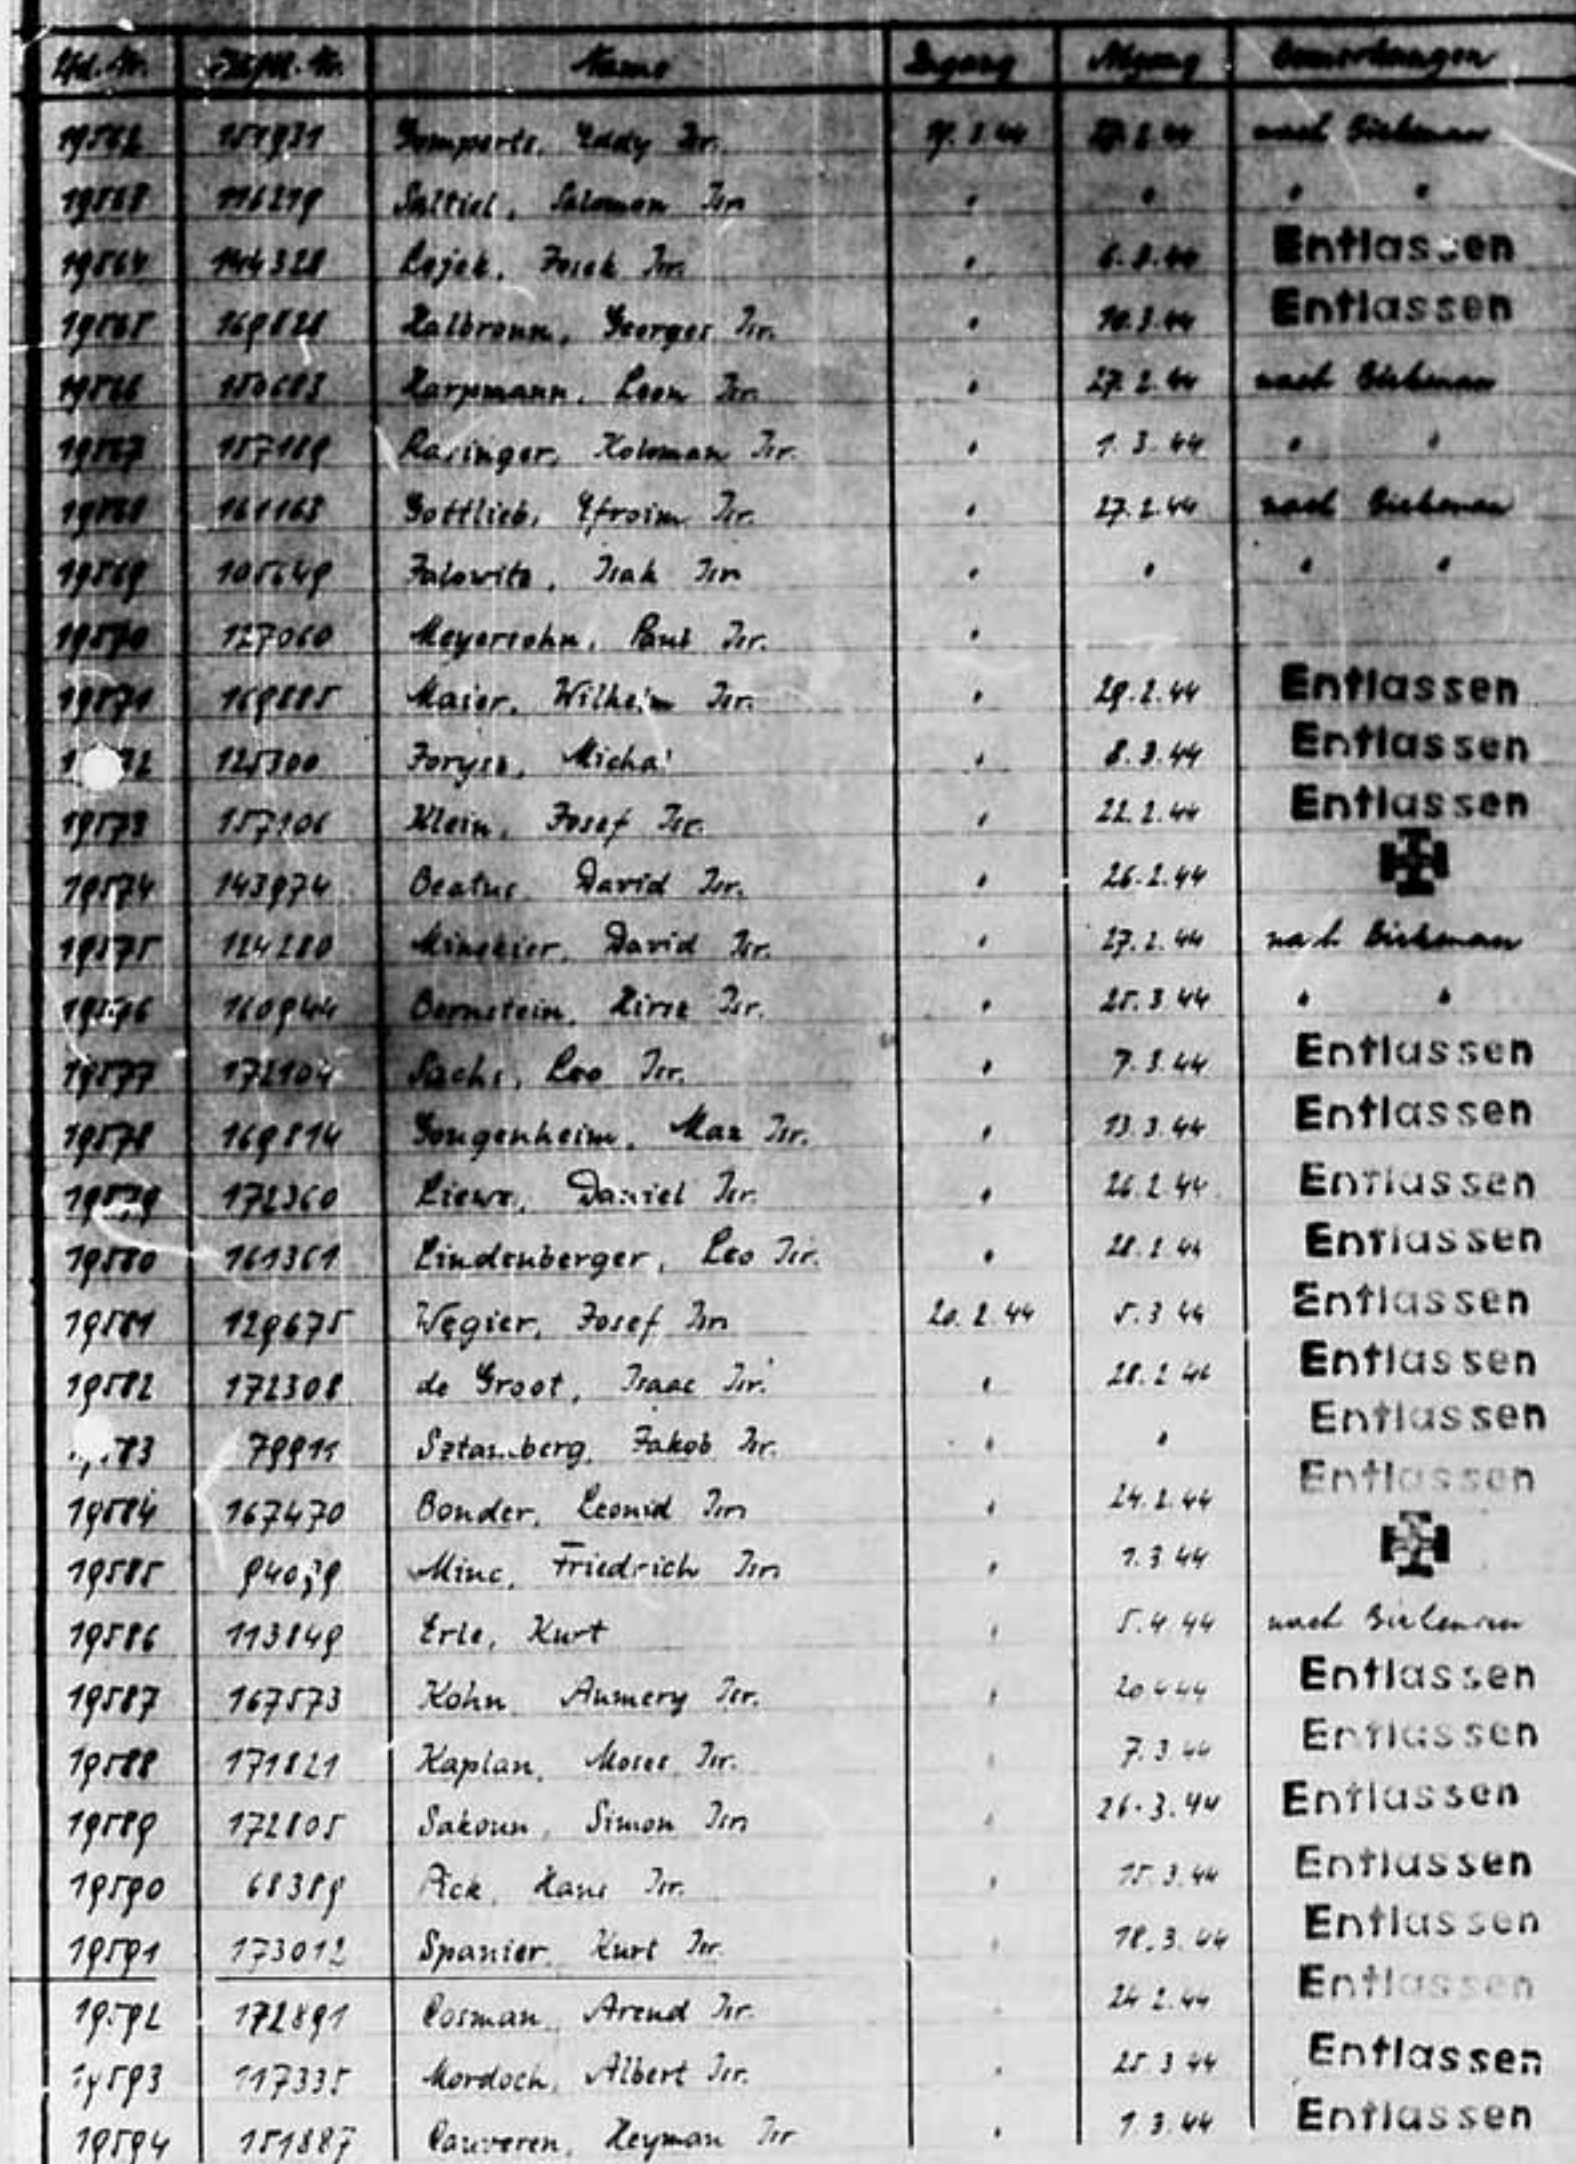 Lfd. Nr. Häftl. Nr. Name Zugang Abgang Bemerkungen
19562 151931 Gomperts, Eddy Isr. 19.2.44 27.2.44 nach Birkenau
19563 116279 Saltiel, Salomon Isr. " " " "
19564 144328 Lejek, Josek Isr. " 6.3.44 Entlassen
19565 169828 Halbronn, Georges Isr. " 10.3.44 Entlassen
19566 150683 Karpmann, Leon Isr. " 27.2.44 nach Birkenau
19567 157189 Rasinger, Koloman Isr. " 1.3.44 " "
19568 161163 Gottlieb, Efroim Isr. " 27.2.44 nach Birkenau
19569 105649 Jalowitz, Isak Isr. " " " "
19570 127060 Meyersohn, Paul Isr. "
19571 169885 Maier, Wilhelm Isr. " 29.2.44 Entlassen
125300 Forysz, " 8.3.44 Entlassen
19573 157106 Klein, Josef Isr. " 22.2.44 Entlassen
19574 143974 Beatus, David Isr. " 26.2.44
19575 124280 Minskier, David Isr. " 27.2.44 nach Birkenau
19576 160944 Bernstein, Hirsz Isr. " 25.3.44 " "
19577 172104 Sachs, Leo Isr. " 7.3.44 Entlassen
19578 169814 Gougenheim, Max Isr. " 13.3.44 Entlassen
19579 172360 Liewe, Daniel Isr. " 26.2.44 Entlassen
19580 161361 Lindenberger, Leo Isr. " 28.2.44 Entlassen
19581 129675 Węgier, Josef Isr. 20.2.44 5.3.44 Entlassen
19582 172308 de Groot, Isaac Isr. " 28.2.44 Entlassen
79911 Jakob Isr. " " Entlassen
19584 167470 Bonder, Leonid Isr. " 24.2.44 Entlassen
19585 Minc, Friedrich Isr. " 1.3.44
19586 113849 Erle, Kurt " 5.4.44 nach Birkenau
19587 167573 Kohn Aumery Isr. " 20.4.44 Entlassen
19588 171821 Kaplan, Moses Isr. " 7.3.44 Entlassen
19589 172805 Sakoun, Simon Isr. " 26.3.44 Entlassen
19590 68389 Pick, Hans Isr. " 15.3.44 Entlassen
19591 173012 Spanier, Kurt Isr. " 18.3.44 Entlassen
19592 172891 Cosman, Arend Isr. " 24.2.44 Entlassen
19593 117335 Mordoch, Albert Isr. " 25.3.44 Entlassen
19594 151887 Cauveren, Heyman Isr " 1.3.44 Entlassen